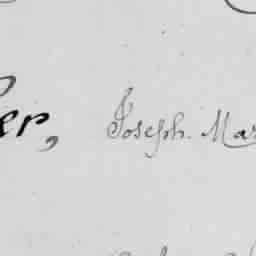 er, Joseph. Mar